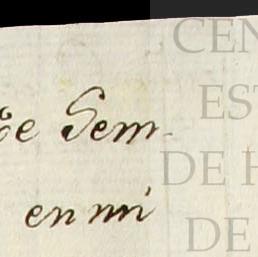 CEN
EST
DE H
DE
Sem-
en mi